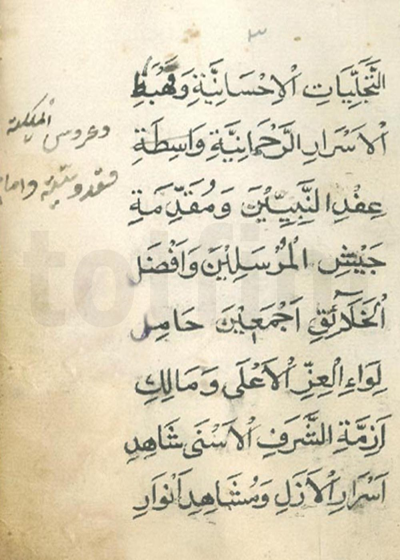 ٣
التَّجَلِّيَاتِ الْاِحْسَانِيَّةِ وَمَهْبَطِ
الْاَسْرَارِ الرَّحْمَانِيَّةِ وَاسِطَةِ
عِقْدِ النَّبِيِّيْنَ وَمُقَدِّمَةِ
جَيْشِ الْمُرْسَلِيْنَ وَاَفْضَلِ
الْخَلَآئِقِ اَجْمَعِيْنَ حَامِلِ
لِوَاءِ الْعِزِّ الْاَعْلَى وَمَالِكِ
اَزِمَّةِ الشَّرَفِ الْاَسْنَى شَاهِدِ
اَسْرَارِ الْاَزَلِ وَمُشَاهِدِ اَنْوَارِ
وعروس المملكة
واما